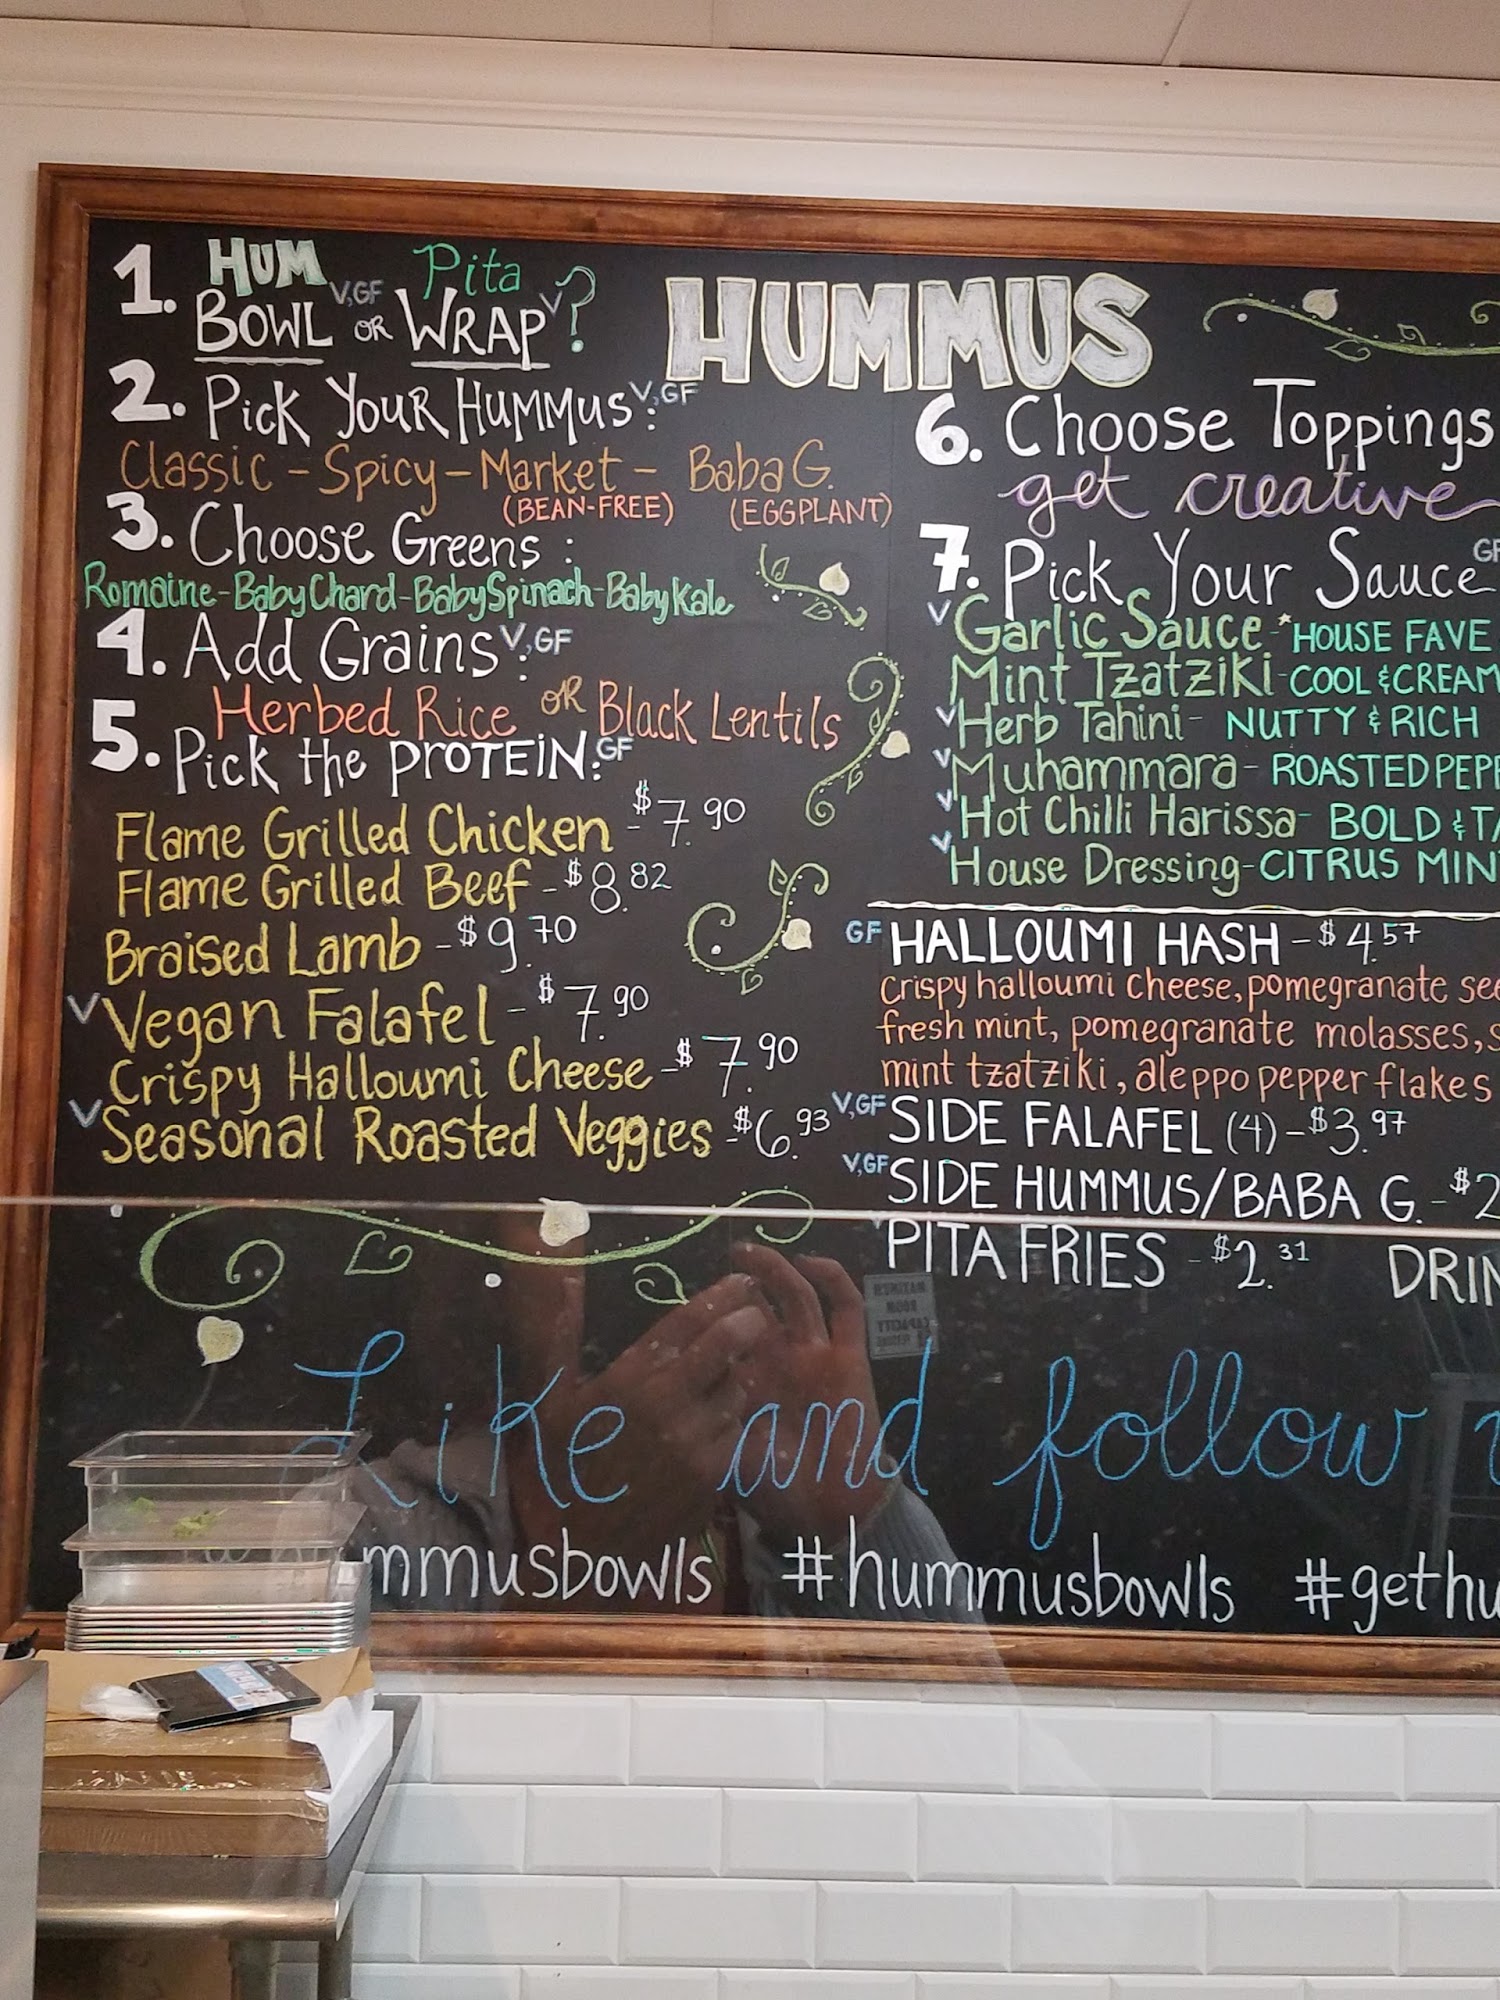 1. HUM V,GF Pita V
BOWL OR WRAP?
2. Pick Your Hummus: V,GF
Classic - Spicy - Market - Baba G.
(BEAN-FREE) (EGGPLANT)
3. Choose Greens:
Romaine-Baby Chard-Baby Spinach-Baby Kale
4. Add Grains: V,GF
Herbed Rice OR Black Lentils
5. Pick the PROTEIN: GF
Flame Grilled Chicken - $7.90
Flame Grilled Beef - $8.82
Braised Lamb - $9.70
V Vegan Falafel - $7.90
Crispy Halloumi Cheese - $7.90
V Seasonal Roasted Veggies - $6.93
HUMMUS
6. Choose Toppings
get creative
7. Pick Your Sauce GF
V Garlic Sauce - *HOUSE FAVE
Mint Tzatziki - COOL & CREAM
V Herb Tahini - NUTTY & RICH
V Muhammara - ROASTED PEPP
V Hot Chilli Harissa - BOLD & TA
V House Dressing - CITRUS MIN
GF HALLOUMI HASH - $4.57
crispy halloumi cheese, pomegranate see
fresh mint, pomegranate molasses, s
mint tzatziki, aleppo pepper flakes
V,GF SIDE FALAFEL (4) - $3.97
V,GF SIDE HUMMUS/BABA G. - $2
PITA FRIES - $2.31 DRIN
MAXIMUM
ROOM
CAPACITY
Like and follow
mmusbowls #hummusbowls #gethu